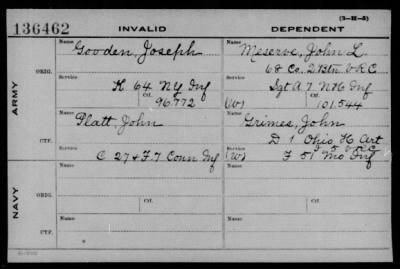 (3-H-5)
136462 INVALID DEPENDENT
ARMY
ORIG.
Name Gooden, Joseph
Service K 64 NY Inf
Ctf. 96.772
Name Meserve, John L
68 Co. 2 Btn V.R.C.
Service Sgt A 7 N.H. Inf
(W) Ctf. 101.544
CTF.
Name Platt, John
Service C 27 & F. 7 Conn Inf
Name Grimes, John
D 1 Ohio H Art
Service (W) F 51 Mo Inf
NAVY
ORIG.
Name
Service
Ctf.
Name
Service
Ctf.
CTF.
Name
Service
Name
Service